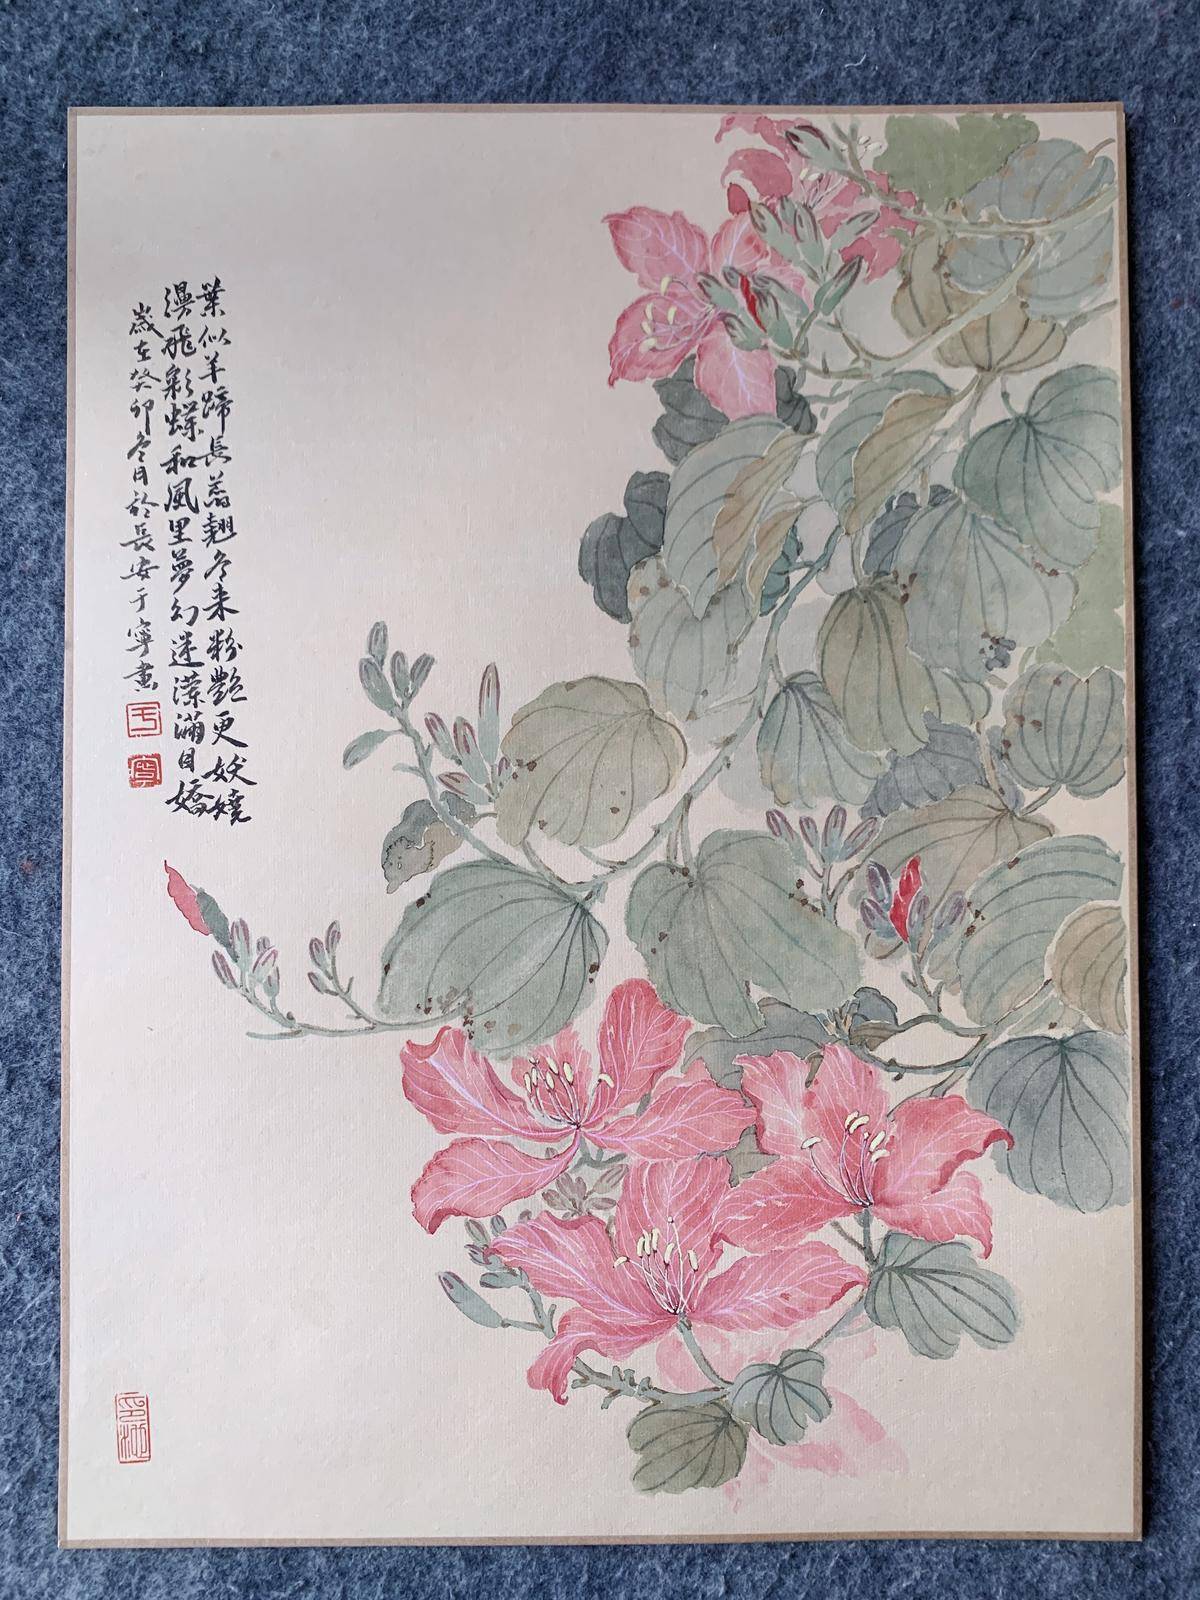 葉似羊蹄長蕊翹冬来粉艷更妖嬈
漫飛彩蝶和風里夢幻迷濛滿目嬌
歲在癸卯冬月於長安于寧畫
于
寧